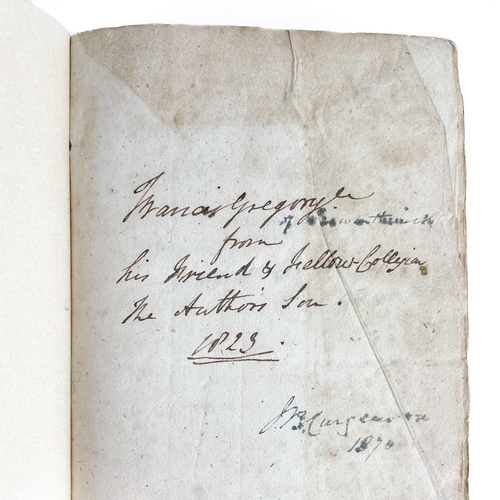 Francis Gregory
of
from
his Friend & Fellow-Collegian
The Author's Son.
1823.
J. B. Curgenven
1870